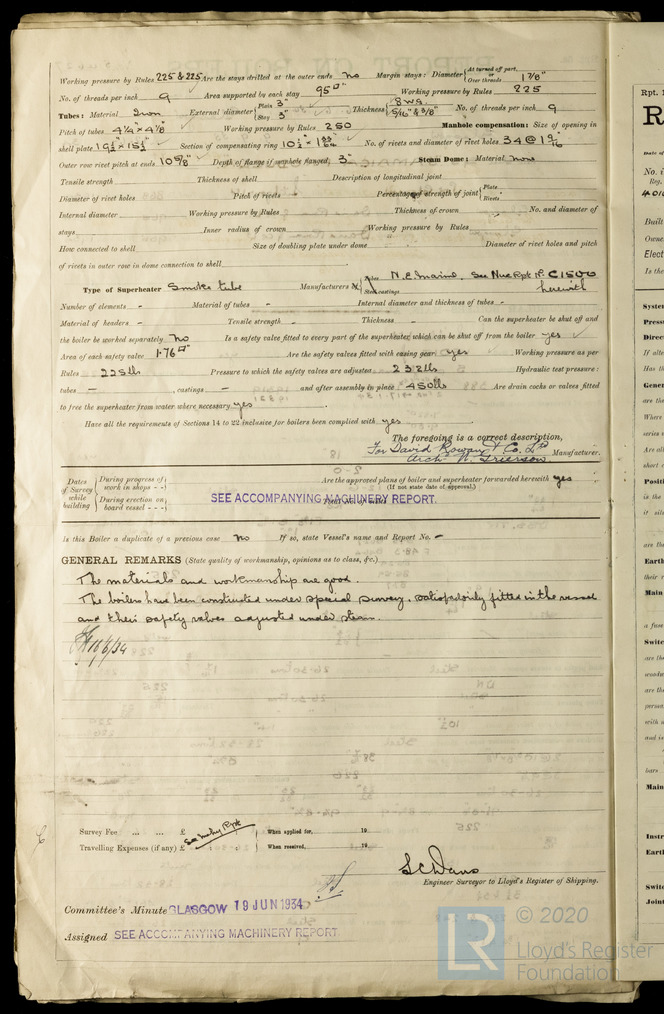 Working pressure by Rules 225 & 225 Are the stays drilled at the outer ends No Margin stays: Diameter { At turned off part, or Over threads 1 7/8"
No. of threads per inch 9 Area supported by each stay 95" Working pressure by Rules 225
Tubes: Material Iron External diameter { Plain 3" Stay 3" Thickness { 8 W.G. 5/16" & 3/8" No. of threads per inch 9
Pitch of tubes 4 1/4" x 4 1/8" Working pressure by Rules 250 Manhole compensation: Size of opening in
shell plate 19 1/2" x 15 1/2" Section of compensating ring No. of rivets and diameter of rivet holes 34 @ 1 9/16
Outer row rivet pitch at ends 10 5/8" Depth of flange if manhole flanged 3" Steam Dome: Material None
Tensile strength Thickness of shell Description of longitudinal joint
Diameter of rivet holes Pitch of rivets Percentage of strength of joint { Plate Rivets
Internal diameter Working pressure by Rules Thickness of crown No. and diameter of
stays Inner radius of crown Working pressure by Rules
How connected to shell Size of doubling plate under dome Diameter of rivet holes and pitch
of rivets in outer row in dome connection to shell
Type of Superheater Smoke tube Manufacturers of { Tubes Steel castings N.E. Marine. See Nwc Rpt No. C1500 herewith
Number of elements - Material of tubes - Internal diameter and thickness of tubes -
Material of headers - Tensile strength - Thickness - Can the superheater be shut off and
the boiler be worked separately No Is a safety valve fitted to every part of the superheater which can be shut off from the boiler yes
Area of each safety valve 1.76" Are the safety valves fitted with easing gear yes Working pressure as per
Rules 225 lbs Pressure to which the safety valves are adjusted 232 lbs Hydraulic test pressure:
tubes - , castings - and after assembly in place 450 lbs Are drain cocks or valves fitted
to free the superheater from water where necessary yes
Have all the requirements of Sections 14 to 22 inclusive for boilers been complied with yes
The foregoing is a correct description,
For David Rowan & Co. Ltd
Archd W. Grierson Manufacturer.
Dates of Survey while building { During progress of work in shops - - } { During erection on board vessel - - - }
Are the approved plans of boiler and superheater forwarded herewith yes
(If not state date of approval.)
SEE ACCOMPANYING MACHINERY REPORT.
Is this Boiler a duplicate of a previous case No If so, state Vessel's name and Report No. -
GENERAL REMARKS (State quality of workmanship, opinions as to class, &c.)
The materials and workmanship are good.
The boilers have been constructed under special survey, satisfactorily fitted in the vessel
and their safety valves adjusted under steam.
16/6/34
Survey Fee ... ... £ See Mchy Rpt When applied for, 19
Travelling Expenses (if any) £ : : When received, 19
S C Davis
Engineer Surveyor to Lloyd's Register of Shipping.
Committee's Minute GLASGOW 19 JUN 1934
Assigned SEE ACCOMPANYING MACHINERY REPORT.
LR © 2020
Lloyd's Register
Foundation
Rpt.